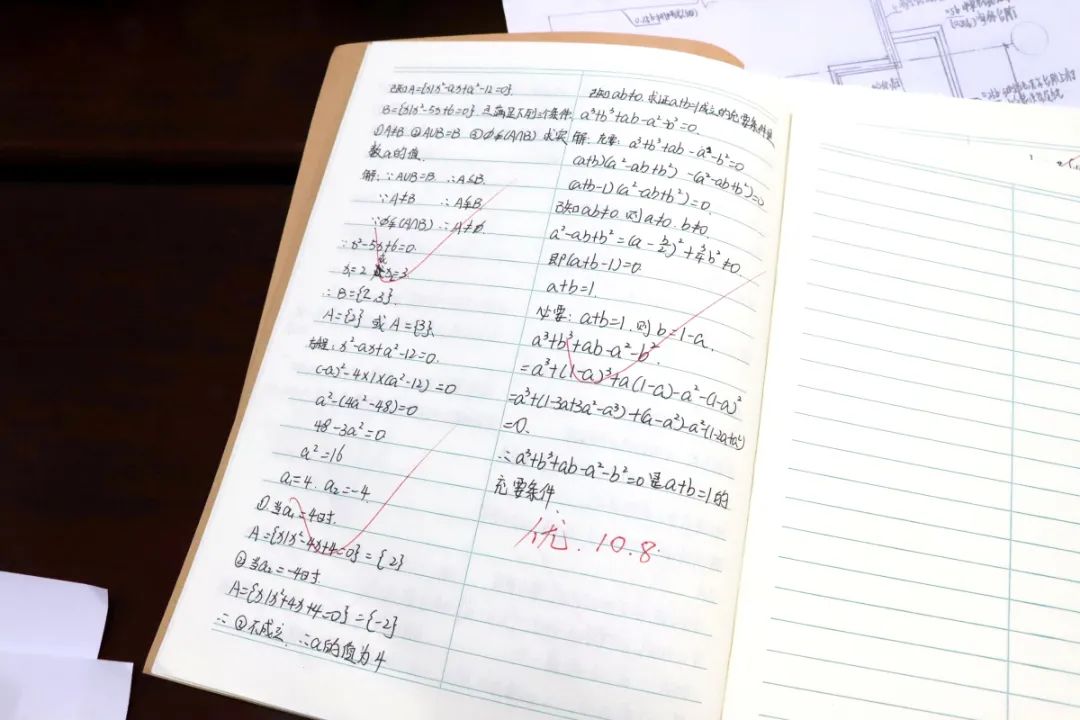 已知A={x|x²-ax+a²-12=0}
B={x|x²-5x+6=0} 且满足下列三个条件:
①A≠B ②A∪B=B ③∅⫋(A∩B) 求实
数a的值.
解: ∵A∪B=B ∴A⊆B.
∵A≠B ∴A⫋B.
∵∅⫋(A∩B) ∴A≠∅.
∵x²-5x+6=0.
x₁=2 x₂=3.
∴B={2,3}.
A={2} 或 A={3}.
方程: x²-ax+a²-12=0.
(-a)²-4×1×(a²-12)=0
a²-(4a²-48)=0
48-3a²=0
a²=16
a₁=4. a₂=-4.
①当a₁=4时.
A={x|x²-4x+4=0}={2}
②当a₂=-4时
A={x|x²+4x+4=0}={-2}
∴②不成立. ∴a的值为4
已知ab≠0. 求证a+b=1成立的充要条件是
a³+b³+ab-a²-b²=0.
解: 充要: a³+b³+ab-a²-b²=0
(a+b)(a²-ab+b²)-(a²-ab+b²)=0
(a+b-1)(a²-ab+b²)=0.
已知ab≠0. 则a≠0. b≠0.
a²-ab+b²=(a-b/2)²+3/4b²≠0.
即(a+b-1)=0.
a+b=1.
必要: a+b=1. 则b=1-a.
a³+b³+ab-a²-b².
=a³+(1-a)³+a(1-a)-a²-(1-a)²
=a³+(1-3a+3a²-a³)+(a-a²)-a²-(1-2a+a²)
=0.
∴a³+b³+ab-a²-b²=0是a+b=1的
充要条件.
优. 10.8.